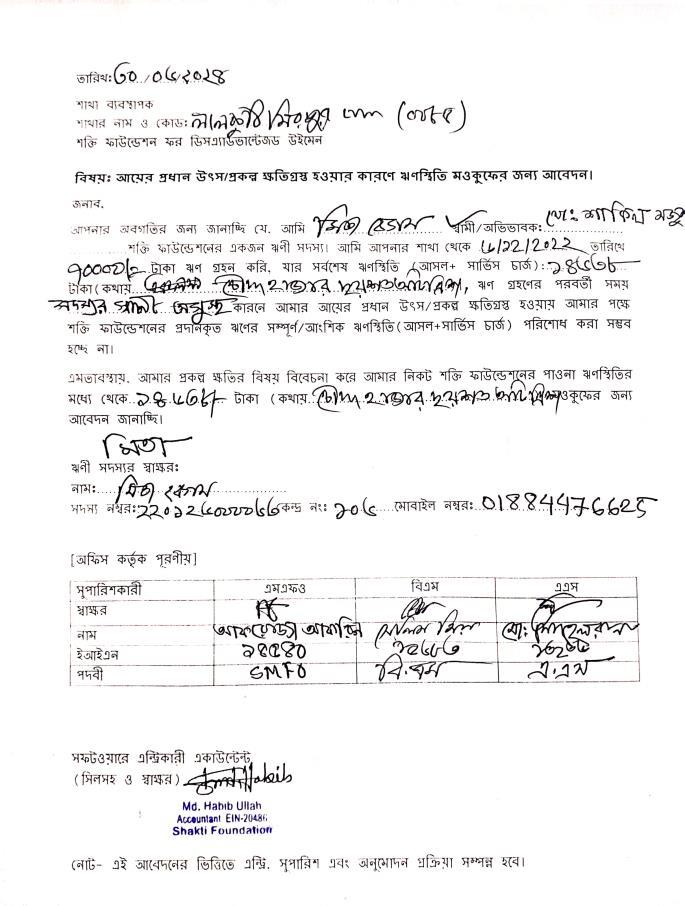 তারিখ: ৩০/০৫/২০২৪
শাখা ব্যবস্থাপক
শাখার নাম ও কোড: লালকুঠী মিরপুর
শক্তি ফাউন্ডেশন ফর ডিসএ্যাডভান্টেজড উইমেন
বিষয়: আয়ের প্রধান উৎস/প্রকল্প ক্ষতিগ্রস্ত হওয়ার কারণে ঋণস্থিতি মওকুফের জন্য আবেদন।
জনাব,
আপনার অবগতির জন্য জানাচ্ছি যে, আমি মিতা বেগম স্বামী/অভিভাবক: মো:
শক্তি ফাউন্ডেশনের একজন ঋণী সদস্য। আমি আপনার শাখা থেকে ৬/১২/২০২২ তারিখে
৭০০০০/= টাকা ঋণ গ্রহন করি, যার সর্বশেষ ঋণস্থিতি (আসল+ সার্ভিস চার্জ):
টাকা (কথায় চৌদ্দ হাজার ছয়শত, ঋণ গ্রহণের পরবর্তী সময়
সদস্যর স্বামী অসুস্থ কারনে আমার আয়ের প্রধান উৎস/প্রকল্প ক্ষতিগ্রস্ত হওয়ায় আমার পক্ষে
শক্তি ফাউন্ডেশনের প্রদানকৃত ঋণের সম্পূর্ণ/আংশিক ঋণস্থিতি(আসল+সার্ভিস চার্জ) পরিশোধ করা সম্ভব
হচ্ছে না।
এমতাবস্থায়, আমার প্রকল্প ক্ষতির বিষয় বিবেচনা করে আমার নিকট শক্তি ফাউন্ডেশনের পাওনা ঋণস্থিতির
মধ্যে থেকে টাকা (কথায় চৌদ্দ হাজার ছয়শত মওকুফের জন্য
আবেদন জানাচ্ছি।
মিতা
ঋণী সদস্যের স্বাক্ষর:
নাম: মিতা বেগম
সদস্য নম্বর: কেন্দ্র নং: ১০৫ মোবাইল নম্বর: 01884476625
[অফিস কর্তৃক পূরণীয়]
সুপারিশকারী এমএফও বিএম এএস
স্বাক্ষর
নাম সেলিম মিয়া মো: সোহেল রানা
ইআইএন ১৪৫৪০
পদবী SMFO বি.এম এ.এস
সফটওয়ারে এন্ট্রিকারী একাউন্টেন্ট
(সিলসহ ও স্বাক্ষর)
Md. Habib Ullah
Accountant EIN-20486
Shakti Foundation
নোট- এই আবেদনের ভিত্তিতে এন্ট্রি, সুপারিশ এবং অনুমোদন প্রক্রিয়া সম্পন্ন হবে।